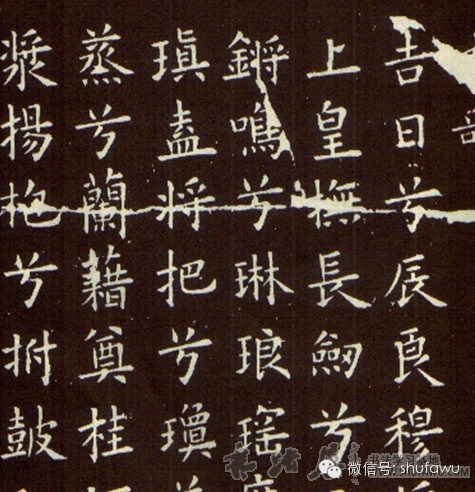 吉日兮辰良穆
上皇撫長劒兮
鏘鳴兮琳琅瑤
瑱盍将把兮瓊
蒸兮蘭藉奠桂
漿揚枹兮拊鼓
微信号: shufawu